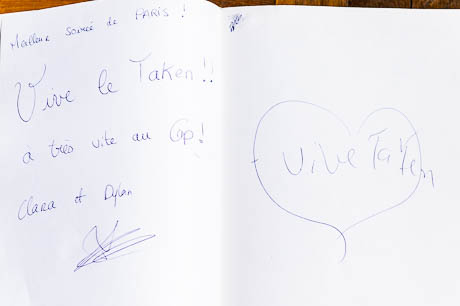 Meilleure soirée de PARIS !
Vive le Taken !!
à très vite au Cap !
Clara et Dylan
Vive Taken